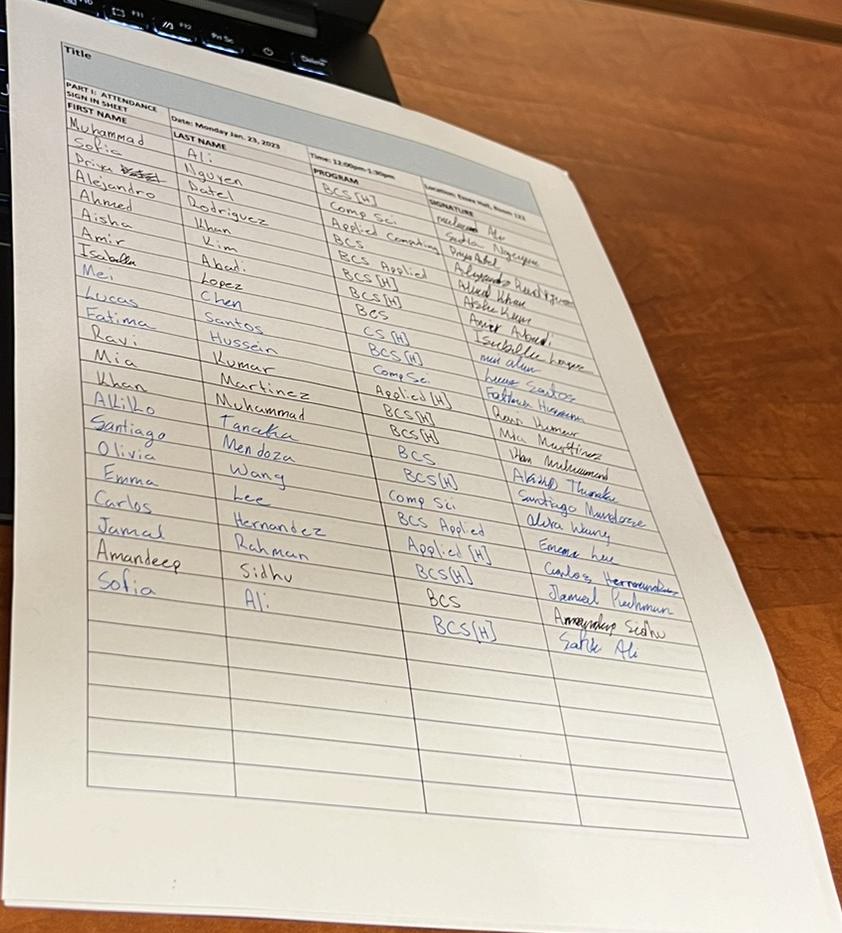 F11 F12 Prt Sc Delete
Title
PART I: ATTENDANCE SIGN IN SHEET Date: Monday Jan. 23, 2023 Time: 12:00pm-1:30pm Location: Essex Hall, Room 122
FIRST NAME LAST NAME PROGRAM SIGNATURE
Muhammad Ali BCS [H] Ali
Sofia Nguyen Comp Sci Sofia Nguyen
Priya Patel Applied Computing Priya Patel
Alejandro Rodriguez BCS Alejandro Rodriguez
Ahmed Khan BCS Applied Ahmed Khan
Aisha Kim BCS [H] Aisha Kim
Amir Abadi BCS [H] Amir Abadi
Isabella Lopez BCS Isabella Lopez
Mei Chen CS [H]
Lucas Santos BCS [H] Lucas Santos
Fatima Hussein Comp Sci Fatima Hussein
Ravi Kumar Applied [H] Ravi Kumar
Mia Martinez BCS [H] Mia Martinez
Khan Muhammad BCS [H] Khan Muhammad
Akiko Tanaka BCS Akiko
Santiago Mendoza BCS [H] Santiago Mendoza
Olivia Wang Comp Sci Wang
Emma Lee BCS Applied Emma Lee
Carlos Hernandez Applied [H] Carlos Hernandez
Jamal Rahman BCS [H] Jamal Rahman
Amandeep Sidhu BCS Amandeep Sidhu
Sofia Ali BCS [H] Ali